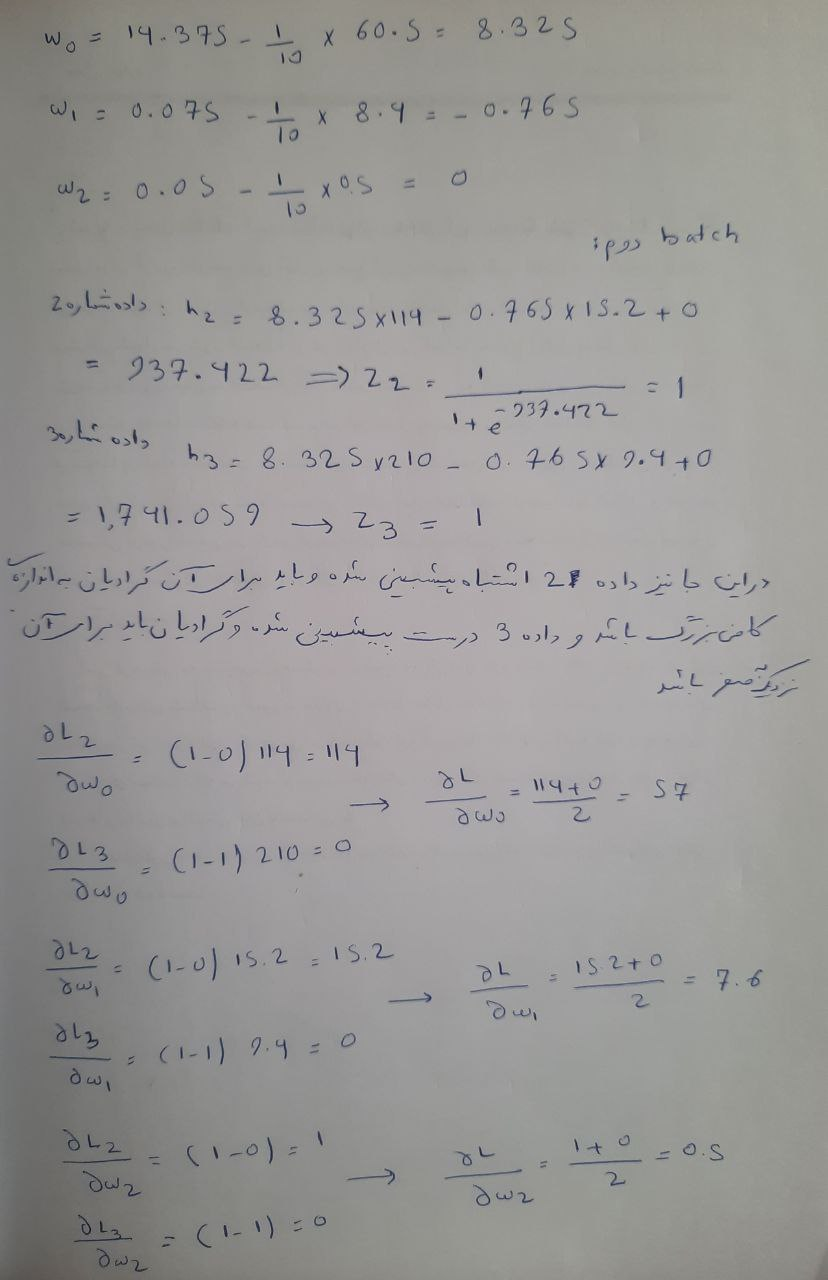 w₀ = 14.375 - 1/10 × 60.5 = 8.325
w₁ = 0.075 - 1/10 × 8.4 = - 0.765
w₂ = 0.05 - 1/10 × 0.5 = 0
batch دوم:
داده شماره 2: h₂ = 8.325×114 - 0.765×15.2 + 0
= 937.422 ⇒ z₂ = 1/(1+e^-937.422) = 1
داده شماره 3 h₃ = 8.325×210 - 0.765×9.4+0
= 1,741.059 → z₃ = 1
دراین جا نیز داده 2 اشتباه پیشبینی شده و باید برای آن گرادیان به اندازه
کافی بزرگ باشد و داده 3 درست پیشبینی شده و گرادیان باید برای آن
نزدیک به صفر باشد
∂L₂/∂w₀ = (1-0) 114 = 114 → ∂L/∂w₀ = (114+0)/2 = 57
∂L₃/∂w₀ = (1-1) 210 = 0
∂L₂/∂w₁ = (1-0) 15.2 = 15.2 → ∂L/∂w₁ = (15.2+0)/2 = 7.6
∂L₃/∂w₁ = (1-1) 9.4 = 0
∂L₂/∂w₂ = (1-0) = 1 → ∂L/∂w₂ = (1+0)/2 = 0.5
∂L₃/∂w₂ = (1-1) = 0